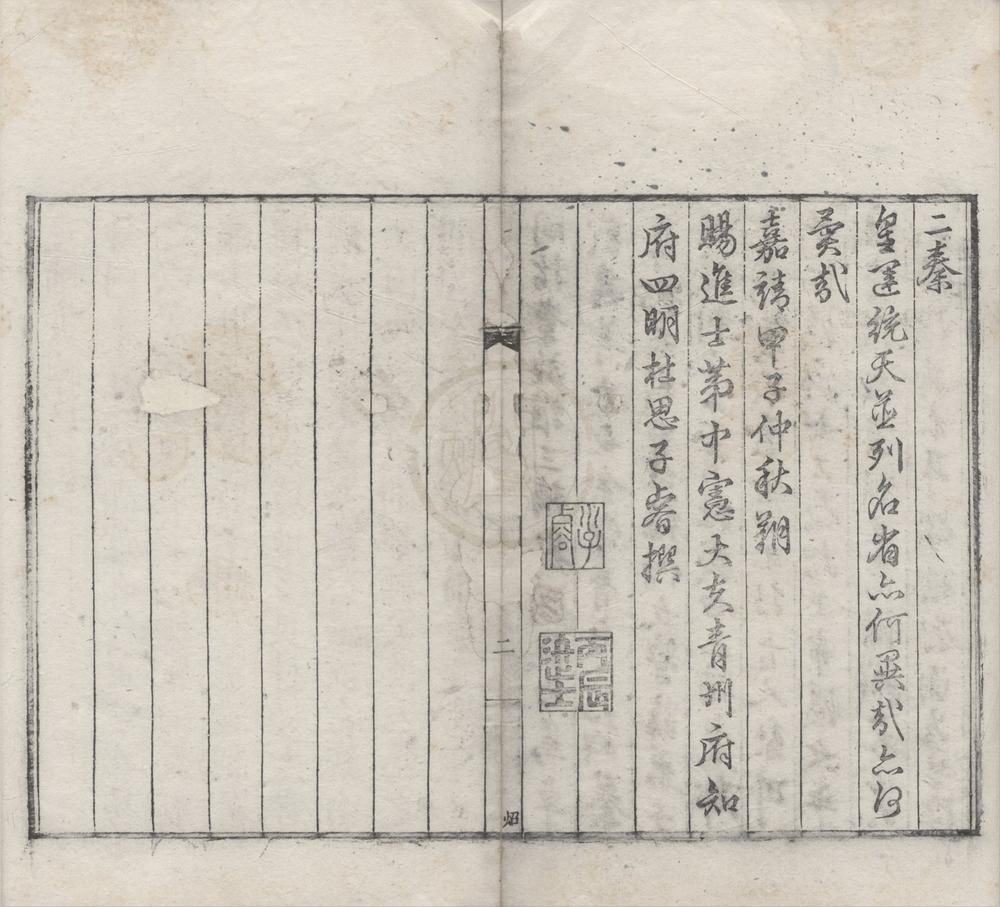 二秦
皇運統天並列名省亦何異哉亦何
異哉
嘉靖甲子仲秋朔
賜進士第中憲大夫青州府知
府四明杜思子睿撰
子睿
丙辰進士
二